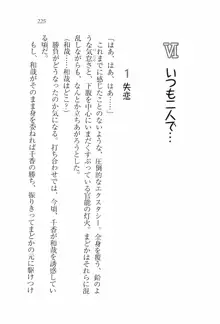 225
Ⅵ いつも二人で…
1 失恋
「はあ、はあ、はあ……」
これまでに感じたことのない、圧倒的なエクスタシー。全身を覆う、鉛のよ
うな気怠さと、下腹にいまだくすぶっている官能の灯火。まどかはそれらに混
乱しながらも、なんとか立ちあがろうとした。
（和哉……和哉っ！）
千香の計画どおりなら、打ち合わせでは、今頃、千香が和哉を誘惑してい
る頃だ。和哉がそのまま身を委ねれば千香の勝ち、振りきってまどかの元に駆けつけ